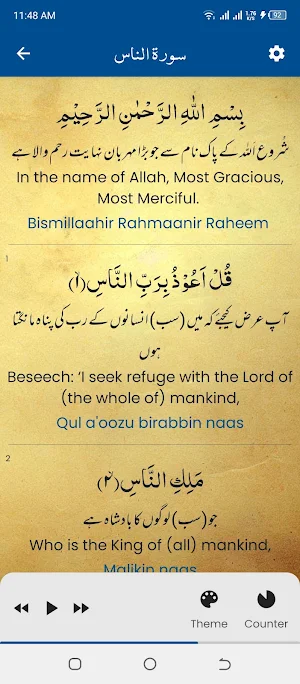 11:48 AM
1.76 K/s
92
سورة الناس
بِسْمِ اللّٰهِ الرَّحْمٰنِ الرَّحِيْمِ
شُروع اللہ کے پاک نام سے جو بڑا مہربان نہایت رحم والا ہے
In the name of Allah, Most Gracious,
Most Merciful.
Bismillaahir Rahmaanir Raheem
1
قُلْ اَعُوْذُ بِرَبِّ النَّاسِ﴿۱﴾
آپ عرض کیجئے کہ میں (سب) انسانوں کے رب کی پناہ مانگتا
ہوں
Beseech: ‘I seek refuge with the Lord of
(the whole of) mankind,
Qul a'oozu birabbin naas
2
مَلِكِ النَّاسِ﴿۲﴾
جو (سب) لوگوں کا بادشاہ ہے
Who is the King of (all) mankind,
Malikin naas
Theme
Counter